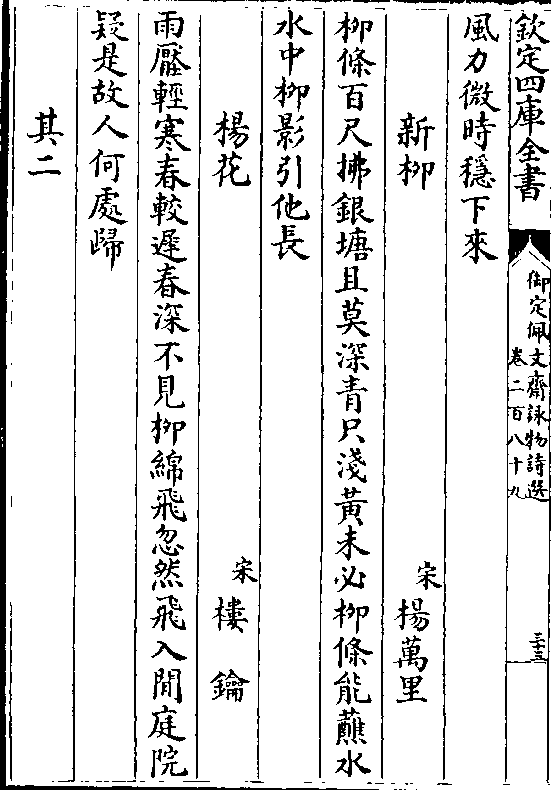 欽定四庫全書
御定佩文齋詠物詩選
卷二百八十九
三十三
風力微時穩下來
新柳
宋楊萬里
柳條百尺拂銀塘且莫深青只淺黃未必柳條能蘸水
水中柳影引他長
楊花
宋樓鑰
雨壓輕寒春較遲春深不見柳綿飛忽然飛入閒庭院
疑是故人何處歸
其二